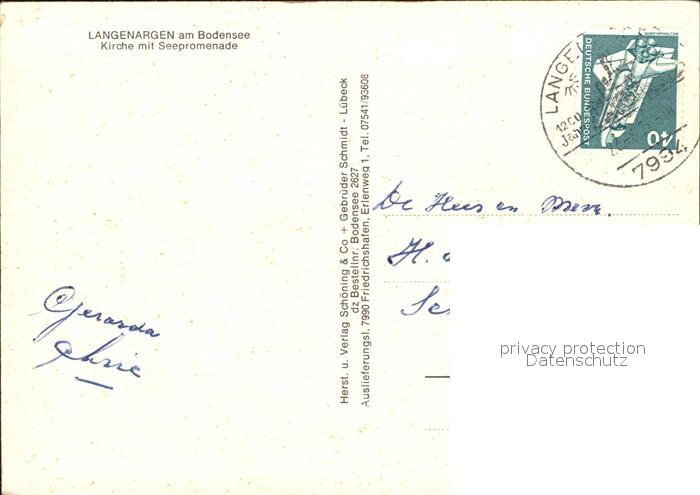 LANGENARGEN am Bodensee
Kirche mit Seepromenade
Herst. u. Verlag Schöning & Co + Gebrüder Schmidt - Lübeck
dz Bestellnr. Bodensee 2627
Auslieferungsl. 7990 Friedrichshafen, Erlenweg 1, Tel. 07541/93608
DEUTSCHE BUNDESPOST
40
LANGE
7994
De Heer en Mevr.
H.
Gerarda
privacy protection
Datenschutz